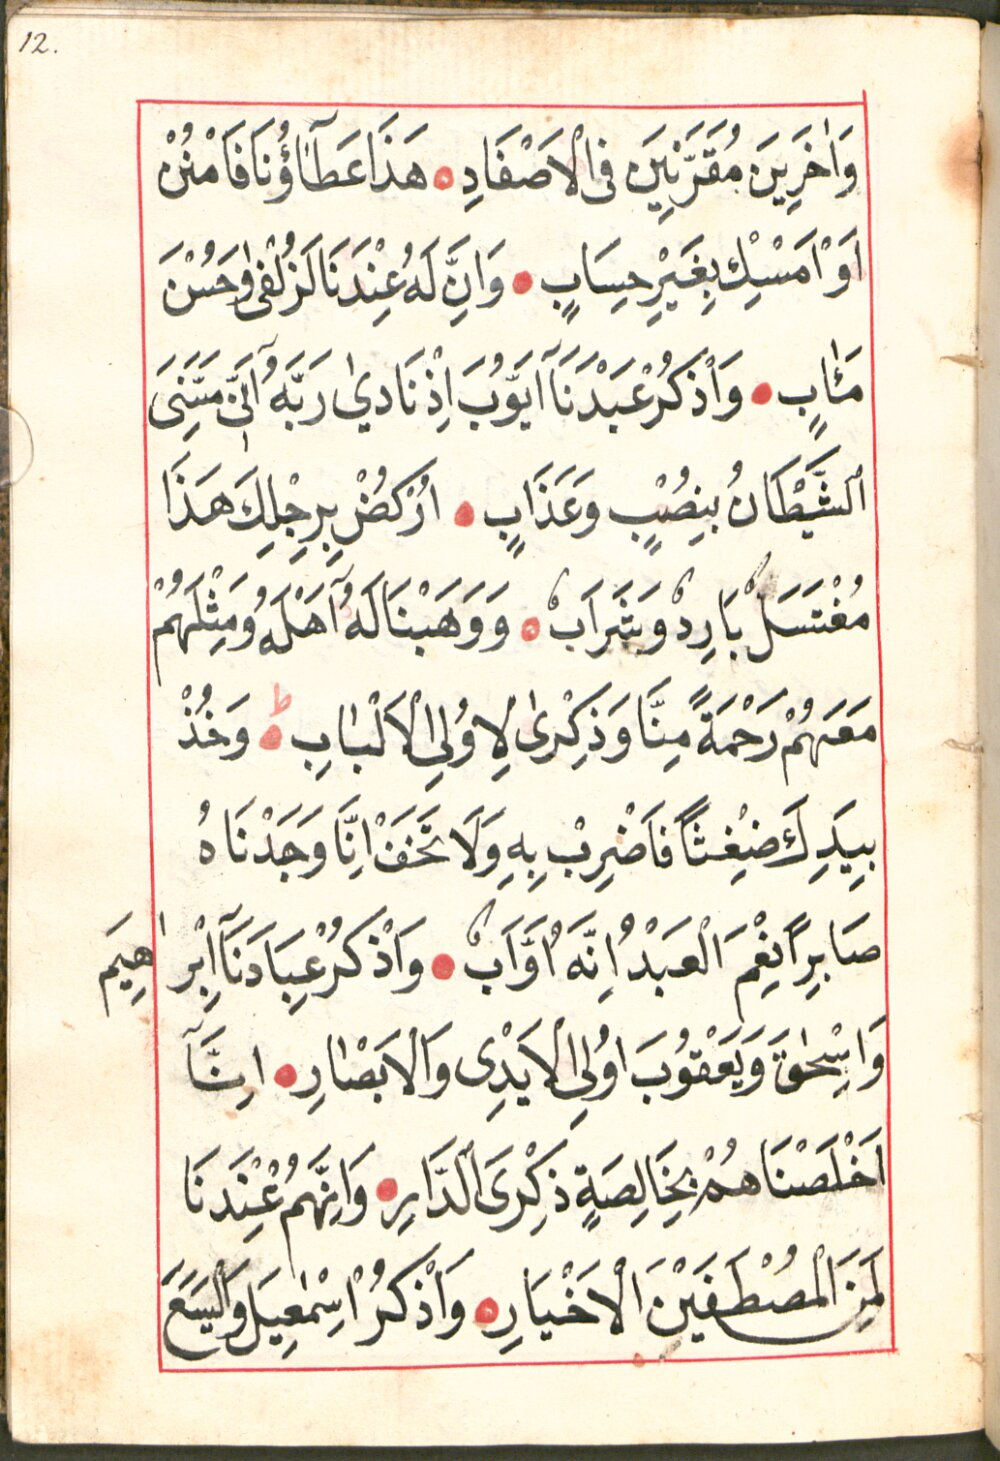 12.
وَاٰخَرِينَ مُقَرَّنِينَ فِى الْاَصْفَادِ ● هَذَا عَطَآؤُنَا فَامْنُنْ
اَوْ اَمْسِكْ بِغَيْرِ حِسَابٍ ● وَاِنَّ لَهُ عِنْدَنَا لَزُلْفٰى وَحُسْنَ
مَئٰابٍ ● وَاْذكُرْ عَبْدَنَآ اَيَّوُبَ اِذْ نَادىٰ رَبَّهُٓ اَنّىِ مَسَّنِىَ
اْلشَّيْطَانُ بِنُصْبٍ وَعَذَابٍ ● اُرْكُضْ بِرِجْلِكَ هَذَا
مُغْتَسَلٌ بَارِدٌ وَشَرَابٌ ● وَوَهَبْنَا لَهُٓ اَهْلَهُ وَمِثْلَهُمْ
مَعَهُمْ رَحْمَةً مِنَّا وَذِكْرىٰ لِاوُلِى الْاَلْبٰابِ ● ط وَخُذْ
بِيَدِكَ ضِغْثاً فَاضْرِبْ بِهِ وَلَا تَحْنَفْ اِنَّا وَجَدْنَاهُ
صَابِراً نِعْمَ الْعَبْدُ اِنَّهُ اَوَّابٌ ● وَاْذكُرْ عِبَادَنَآ اِبْرٰاهِيَم
وَاِسْحٰقَ وَيَعْقوُبَ اوُلِى الْاَيْدِى وَالْاَبْصٰارِ ● اِنَّآ
اَخْلَصْنَاهُمْ بِخَالِصَةٍ ذِكْرَى الدَّارِ ● وَاِنَّهُمْ عِنْدَنَا
لَمِنَ الْمُصْطَفَيْنَ الْاَخْيَارِ ● وَاْذكُرْ اِسْمٰعِيلَ وَاَلْيَسَعَ